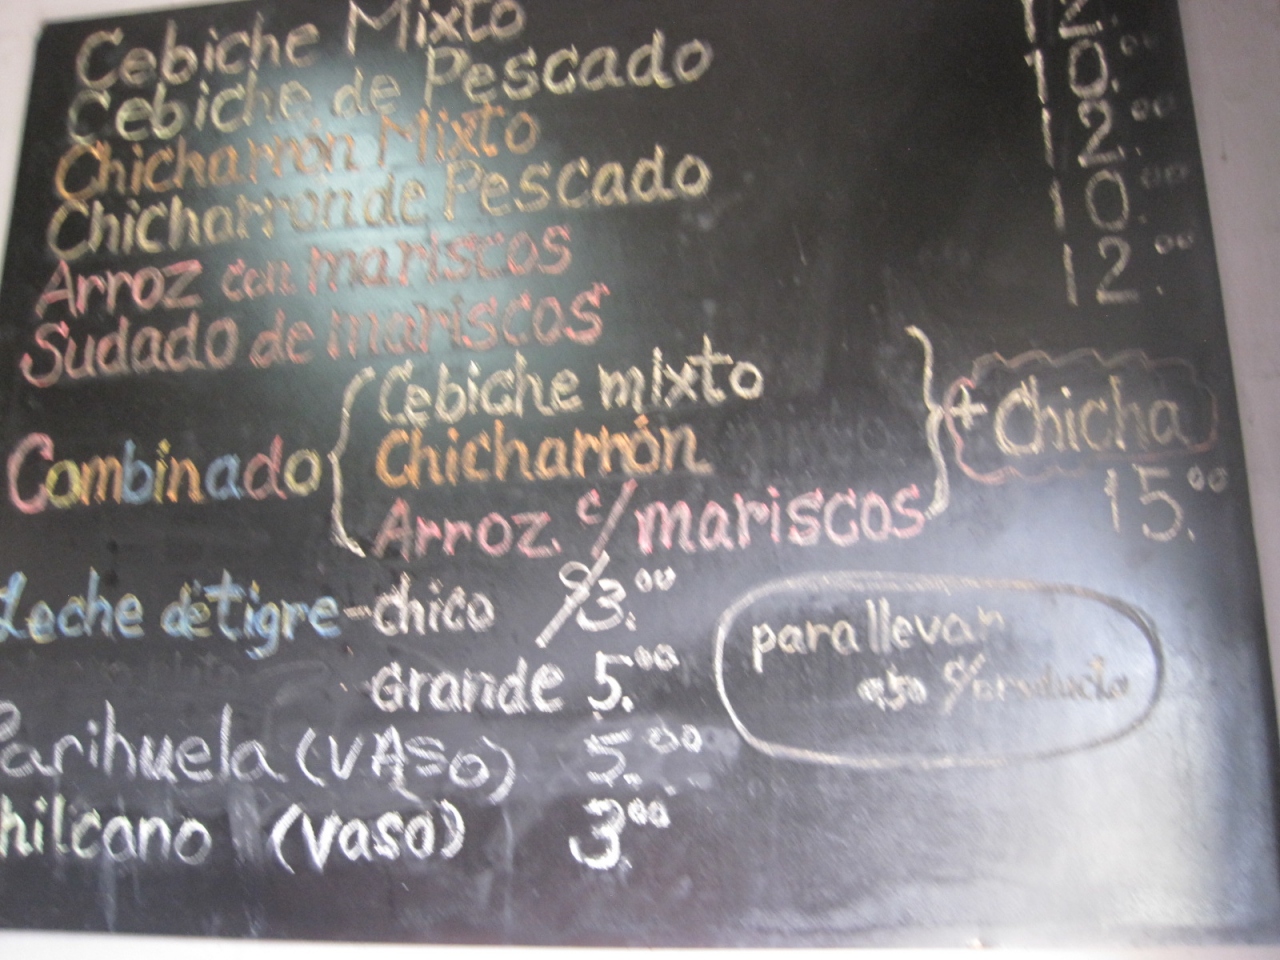 Cebiche Mixto
Cebiche de Pescado
Chicharrón Mixto
Chicharron de Pescado
Arroz con mariscos
Sudado de mariscos
12.
10.00
12.00
10.00
12.00
Combinado { Cebiche mixto
Chicharrón
Arroz c/mariscos } + Chicha
15.00
Leche de Tigre - chico S/3.00
Grande 5.00
Parihuela (VASO) 5.00
hilcano (Vaso) 3.00
para llevar
c/producto